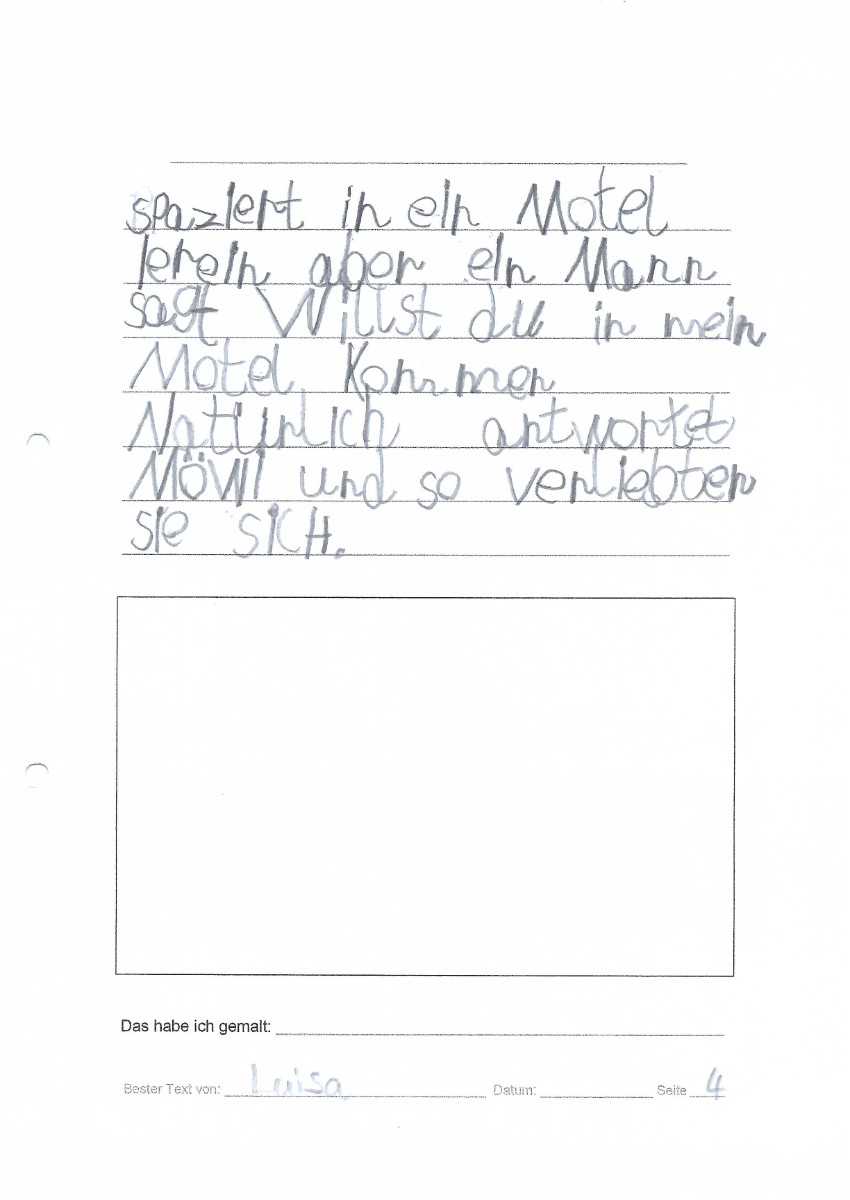 spaziert in ein Motel
rerein aber ein Mann
sagt Willst du in mein
Motel kommen
Natürlich antwortet
Möwi und so verliebten
sie sich.
Das habe ich gemalt:
Bester Text von: Luisa Datum: Seite 4